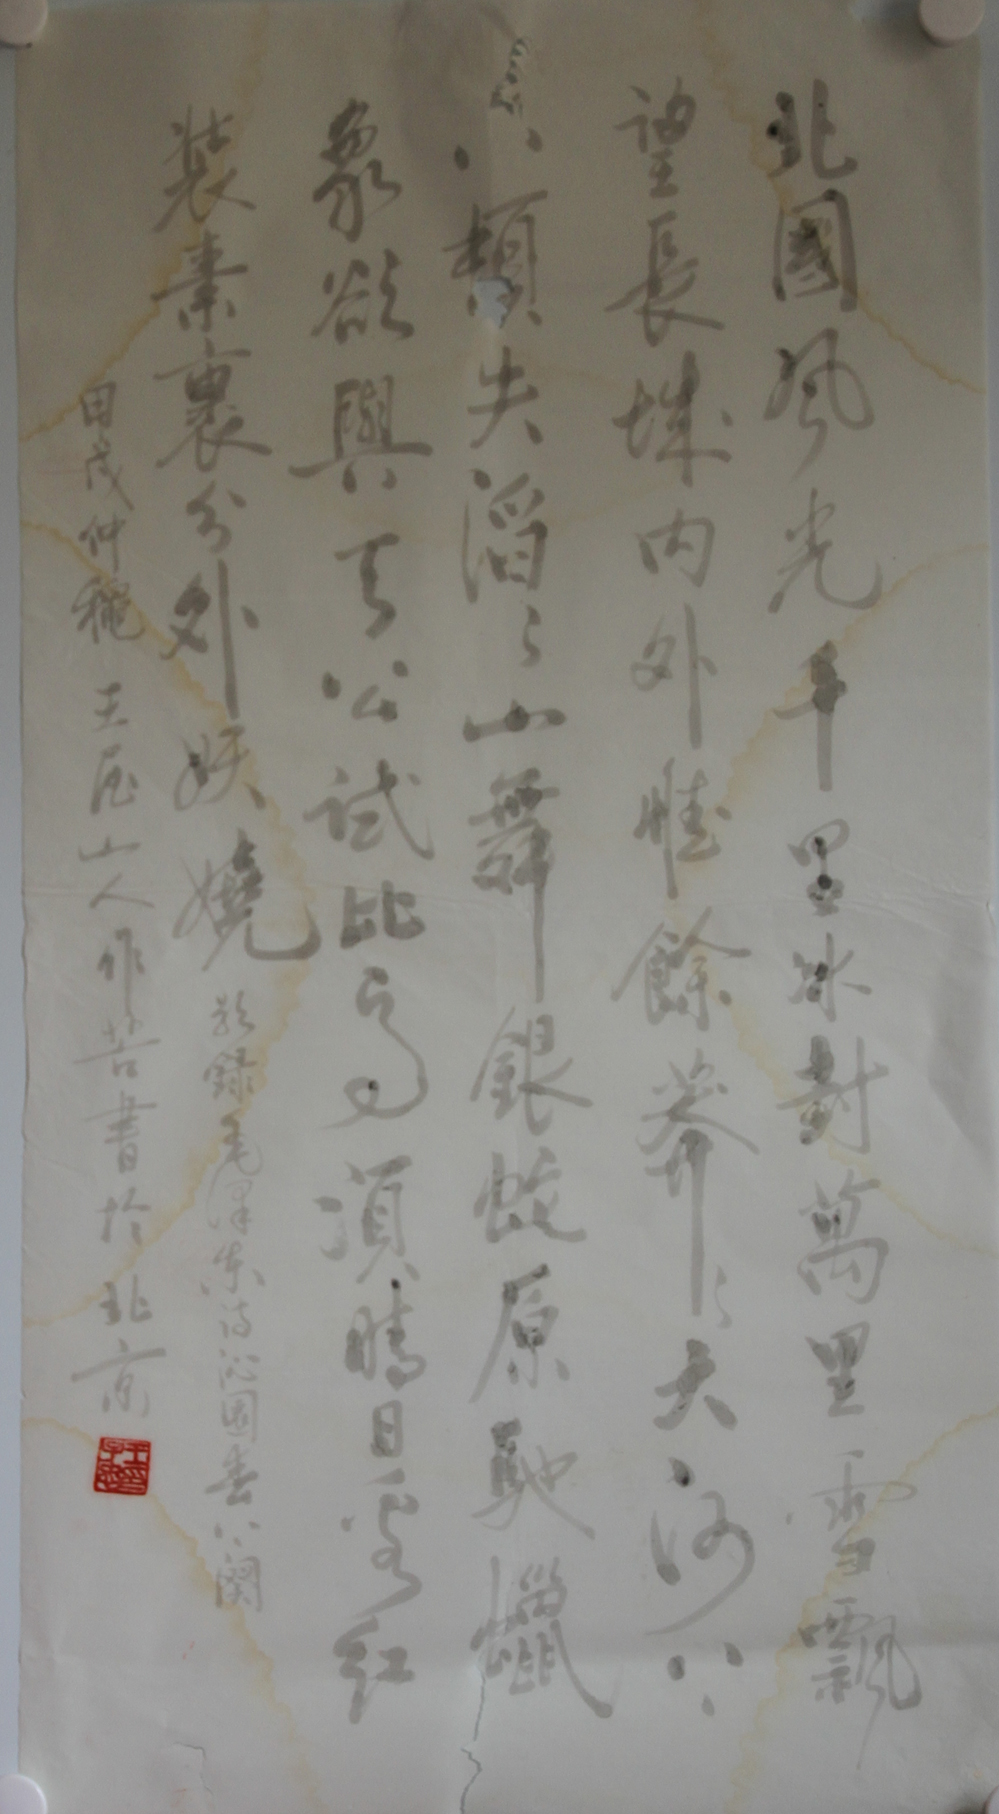 北國風光千里冰封萬里雪飄
望長城内外惟餘莽々大河上
下頓失滔々山舞銀蛇原馳蠟
象欲與天公試比高須晴日看紅
裝素裹分外妖嬈 錄毛澤東詩沁園春上闋
甲戌仲穐王屋山人作苦書於北京